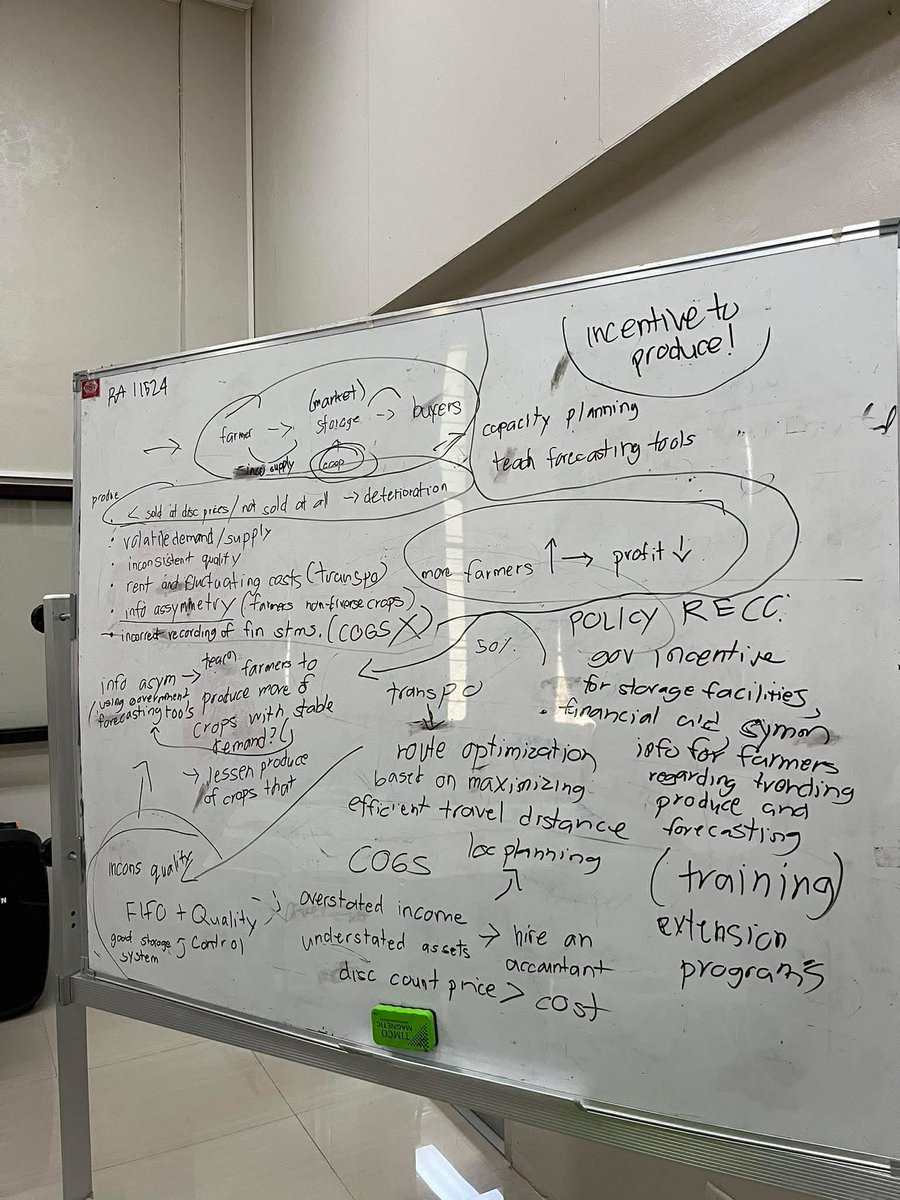 RA 11524
incentive to
produce!
farmer → (market)
storage → buyers
supply
coop
capacity planning
teach forecasting tools
produce
< sold at disc prices/not sold at all → deterioration
• volatile demand/supply
• inconsistent quality
• rent and fluctuating costs (transpo)
• info assymetry (farmers non-diverse crops)
• incorrect recording of fin stms. (COGS X)
more farmers ↑ → profit ↓
50%
info asym → teach farmers to
(using government produce more of
forecasting tools crops with stable
demand?)
→ lessen produce
of crops that
transpo
↓
route optimization
based on maximizing
efficient travel distance
loc planning
POLICY RECC:
gov incentive
for storage facilities,
• financial aid
info for farmers
regarding trending
produce and
forecasting
(training)
extension
programs
incons quality
FIFO + Quality
Control
good storage
system
COGS
overstated income
understated assets → hire an
accountant
disc count price > cost
TIMCO
MAGNETIC